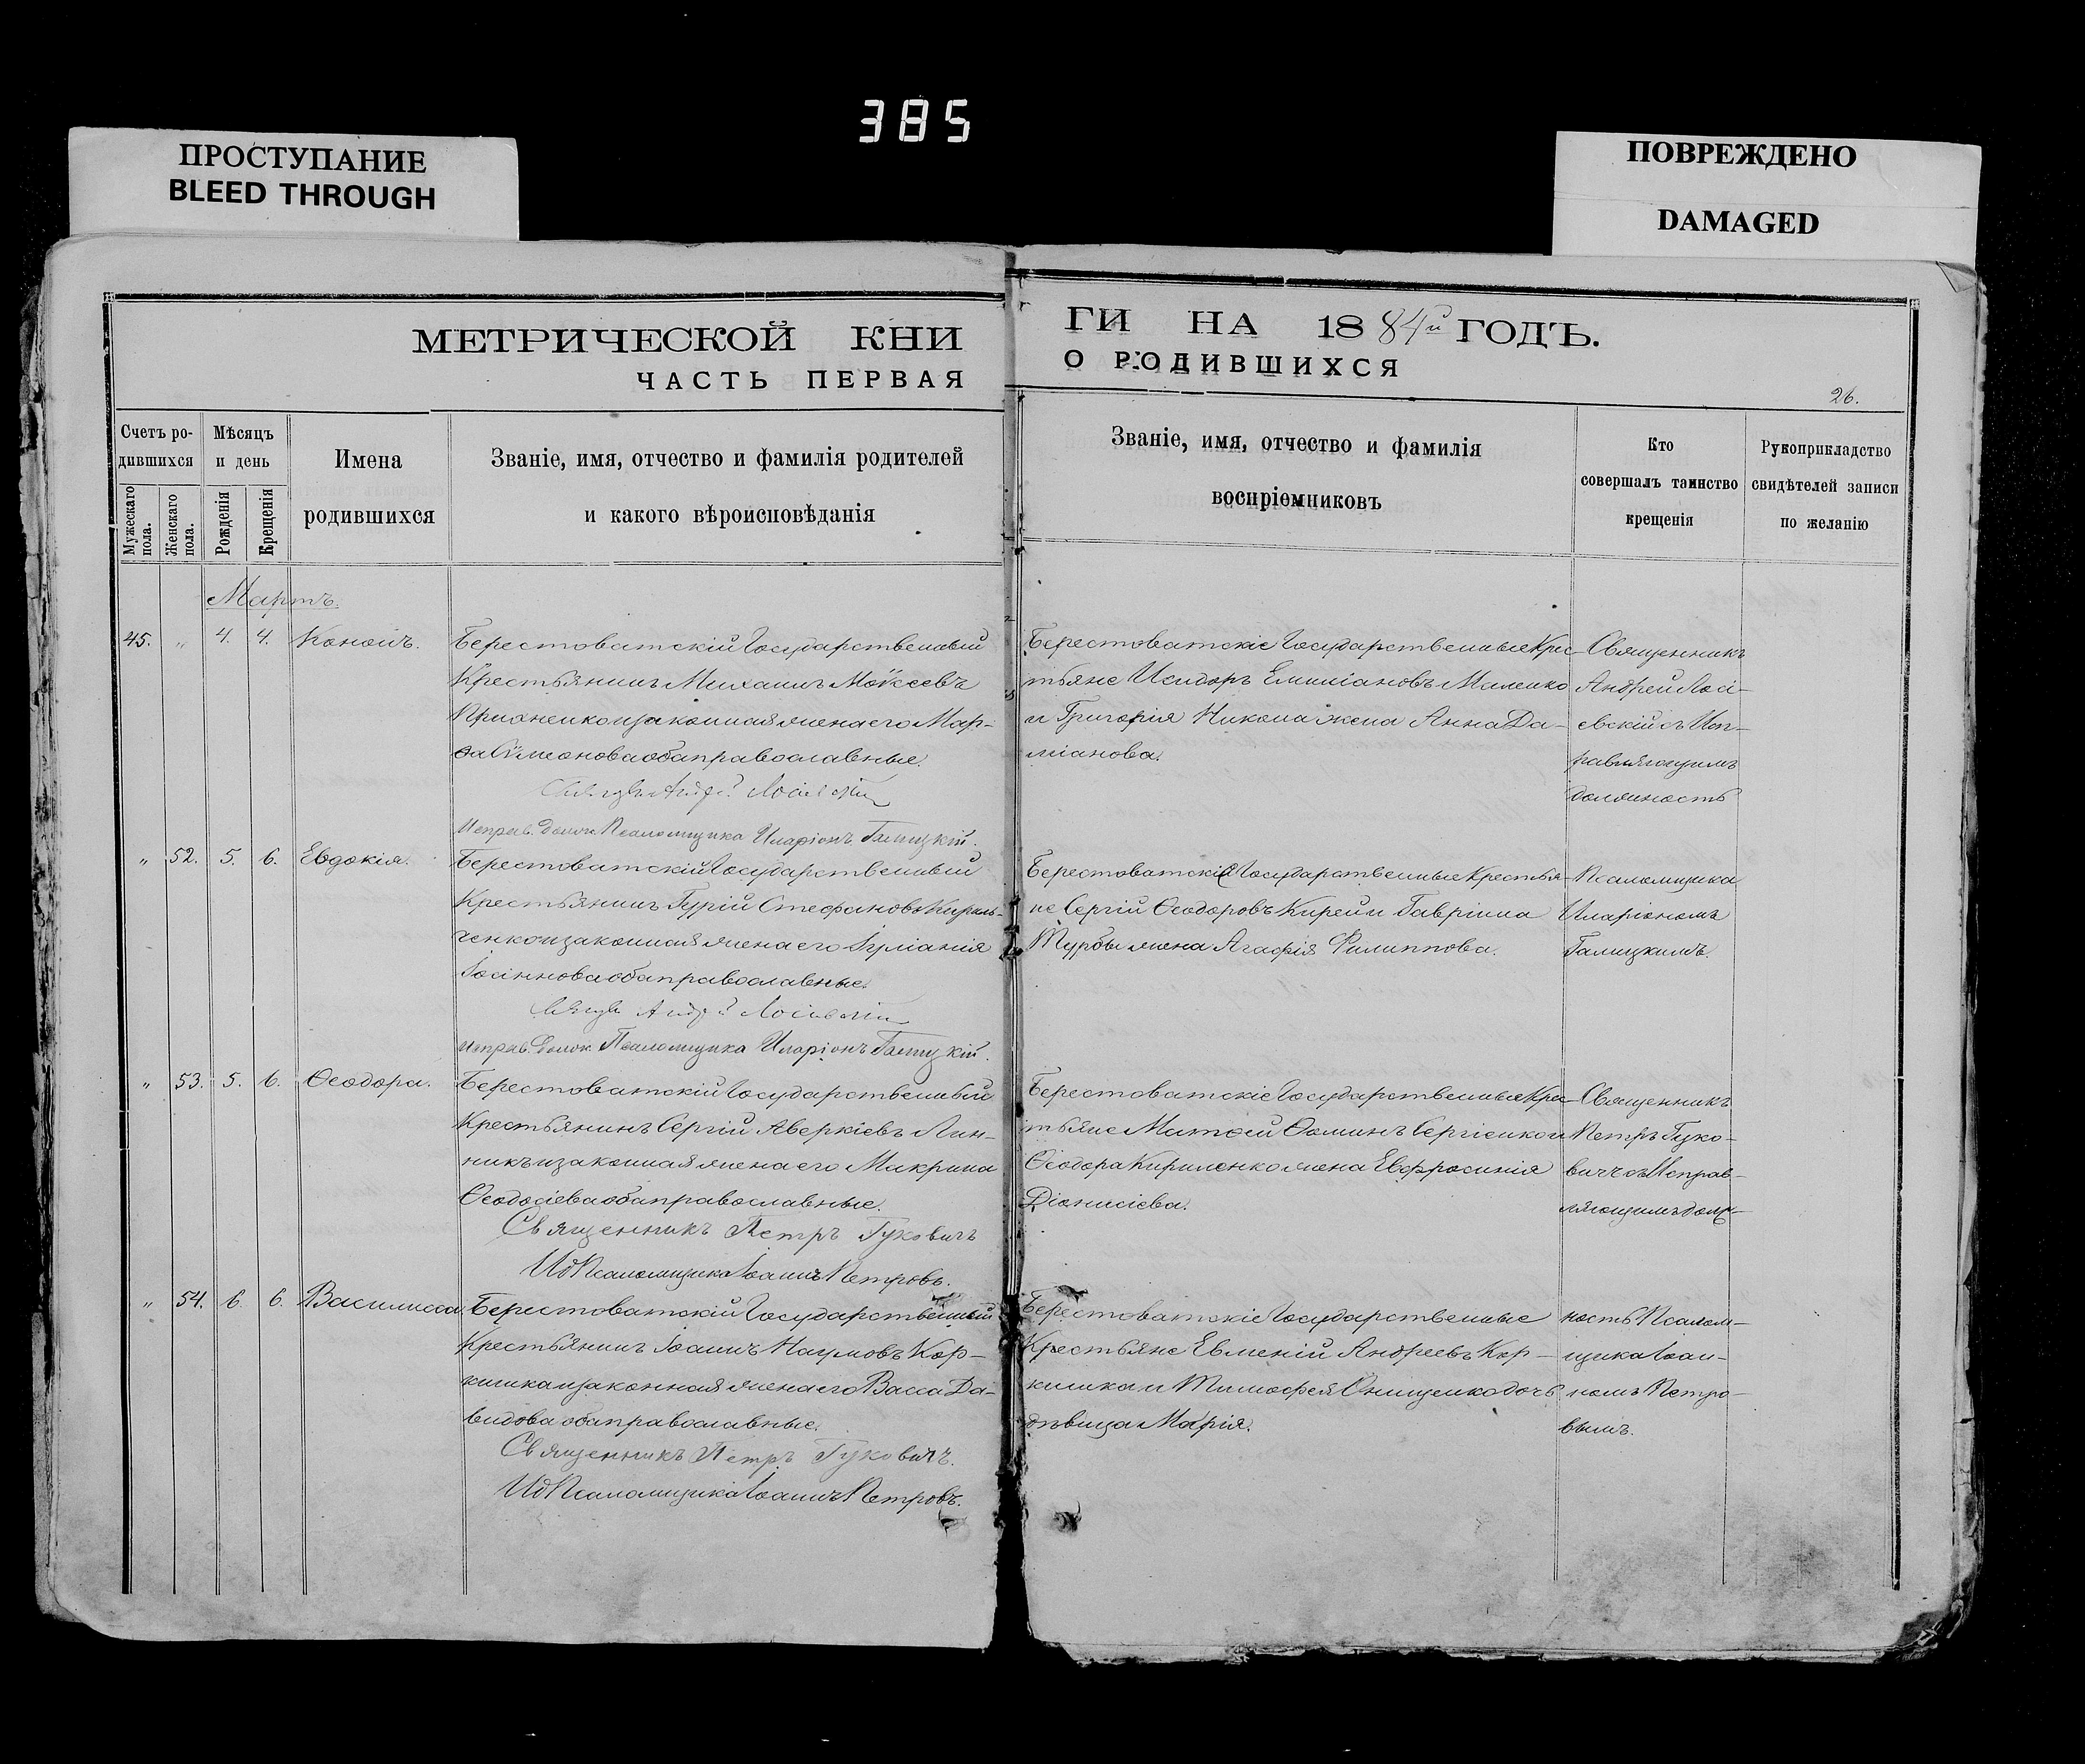 385
ПРОСТУПАНИЕ
BLEED THROUGH
ПОВРЕЖДЕНО
DAMAGED
МЕТРИЧЕСКОЙ КНИ
ЧАСТЬ ПЕРВАЯ
ГИ НА 1884й ГОДЪ.
О РОДИВШИХСЯ
26.
Счетъ ро-
дившихся
Мужескаго пола.
Женскаго пола.
Мѣсяцъ
и день
Рожденія
Крещенія
Имена
родившихся
Званіе, имя, отчество и фамилія родителей
и какого вѣроисповѣданія
Званіе, имя, отчество и фамилія
воспріемниковъ
Кто
совершалъ таинство
крещенія
Рукоприкладство
свидѣтелей записи
по желанію
Мартъ.
45. " 4. 4. Кононъ.
Берестоватскій Государственный
Крестьянинъ Михаилъ Моѵсеевъ
и законная жена его Мар-
ѳа Сѵмеонова оба православные.
Исправ. долж. Псаломщика Иларіонъ Галицкій.
Берестоватскіе Государственные Крес-
тьяне Исидоръ Емиліановъ Маленко
и Григорія Никона жена Анна Да-
міанова.
Священникъ
Андрей Лосі-
евскій съ Исп-
равляющимъ
должность
" 52. 5. 6. Евдокія.
Берестоватскій Государственный
Крестьянинъ Гурій Стефановъ Кириль-
ченко и законная жена его Іуліанія
Іоаннова оба православные.
Исправ. долж. Псаломщика Иларіонъ Галицкій.
Берестоватскіе Государственные Крестья-
не Сергій Ѳеодоровъ Кирей и Гавріила
Турбы жена Агафія Филиппова.
Псаломщика
Иларіономъ
Галицкимъ.
" 53. 5. 6. Ѳеодора.
Берестоватскій Государственный
Крестьянинъ Сергій Аверкіевъ Лин-
никъ и законная жена его Макрина
Ѳеодосіева оба православные.
Священникъ Петръ Гуковичъ
Ид Псаломщика Іоаннъ Петровъ.
Берестоватскіе Государственные Крес-
тьяне Матѳей Ѳоминъ Сергіенко и
Ѳеодора Кириленко жена Евфросинія
Діонисіева.
Священникъ
Петръ Гуко-
вичъ съ Исправ-
ляющимъ долж-
" 54. 6. 6. Василисса
Берестоватскій Государственный
Крестьянинъ Іоаннъ Наумовъ Кор-
и законная жена его Васса Да-
видова оба православные.
Священникъ Петръ Гуковичъ.
Ид Псаломщика Іоаннъ Петровъ.
Берестоватскіе Государственные
Крестьяне Евменій Андреевъ Кор-
и Тимофея Онищенко дочь
дѣвица Марія.
ность Псалом-
щика Іоан-
номъ Петро-
вымъ.